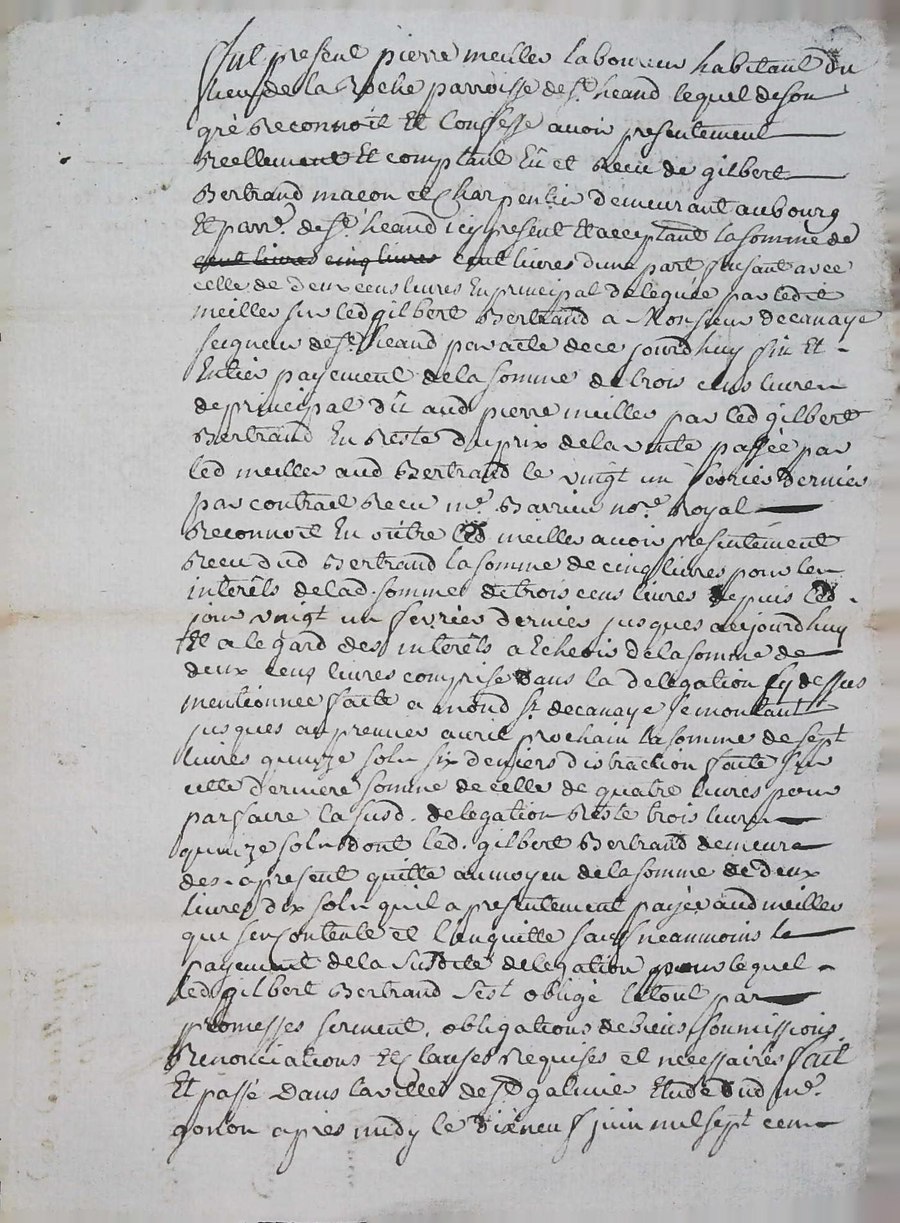 Fut present pierre meiller laboureur habitant du
lieu de la Roche parroisse de St heand lequel de son
gré Reconnoit Et Confesse avoir presentement
Reellement Et comptant Eü et Receu de gilbert
Bertrand maçon et Charpentier demeurant au bourg
Et parr.e de St heand icy present Et acceptant la somme de
cent livres cinq livres Cent livres d'une part faisant avec
celle de deux cens livres En principal deleguée par led it
meiller sur led gilbert Bertrand a Monsieur decanaye
seigneur de St heand par acte de ce jourdhuy fin Et
Entier payement de la somme de trois cens livres
de principal dû aud pierre meiller par led gilbert
Bertrand En Reste du prix de la vente passée par
led meiller aud Bertrand le vingt un fevrier dernier
par contrait Receu me Barrieu nore Royal
Reconnoit En oûtre led meiller avoir presentement
Receu dud Bertrand la somme de cinq livres pour les
interêts de lad. somme de trois cens livres depuis led
jour vingt un fevrier dernier jusques aujourdhuy
Et a legard des interêts a Echeoir de la somme de
deux cens livres comprise dans la delegation cy dessus
mentionnée faite a mond Sr. decanaye se montant
jusques au premier avril prochain la somme de sept
livres quinze sols six deniers distraction faite sur
cette derniere somme de celle de quatre livres pour
parfaire la susd. delegation Reste trois livres
quinze sols dont led. gilbert Bertrand demeure
des apresent quitte au moyen de la somme de deux
livres dix sols qu'il a presentement payée aud meiller
qui sen contente et l'en quitte sauf neanmoins le
payement de la susdite delegation pour lequel
led gilbert Bertrand s'est obligé le tout par
promesses serment, obligations de biens soumissions
Renonciations Et clauses Requises et necessaires fait
Et passé Dans la ville de St galmier Etude dud me.
gonon apres midy le dixneuf juin mil sept cens